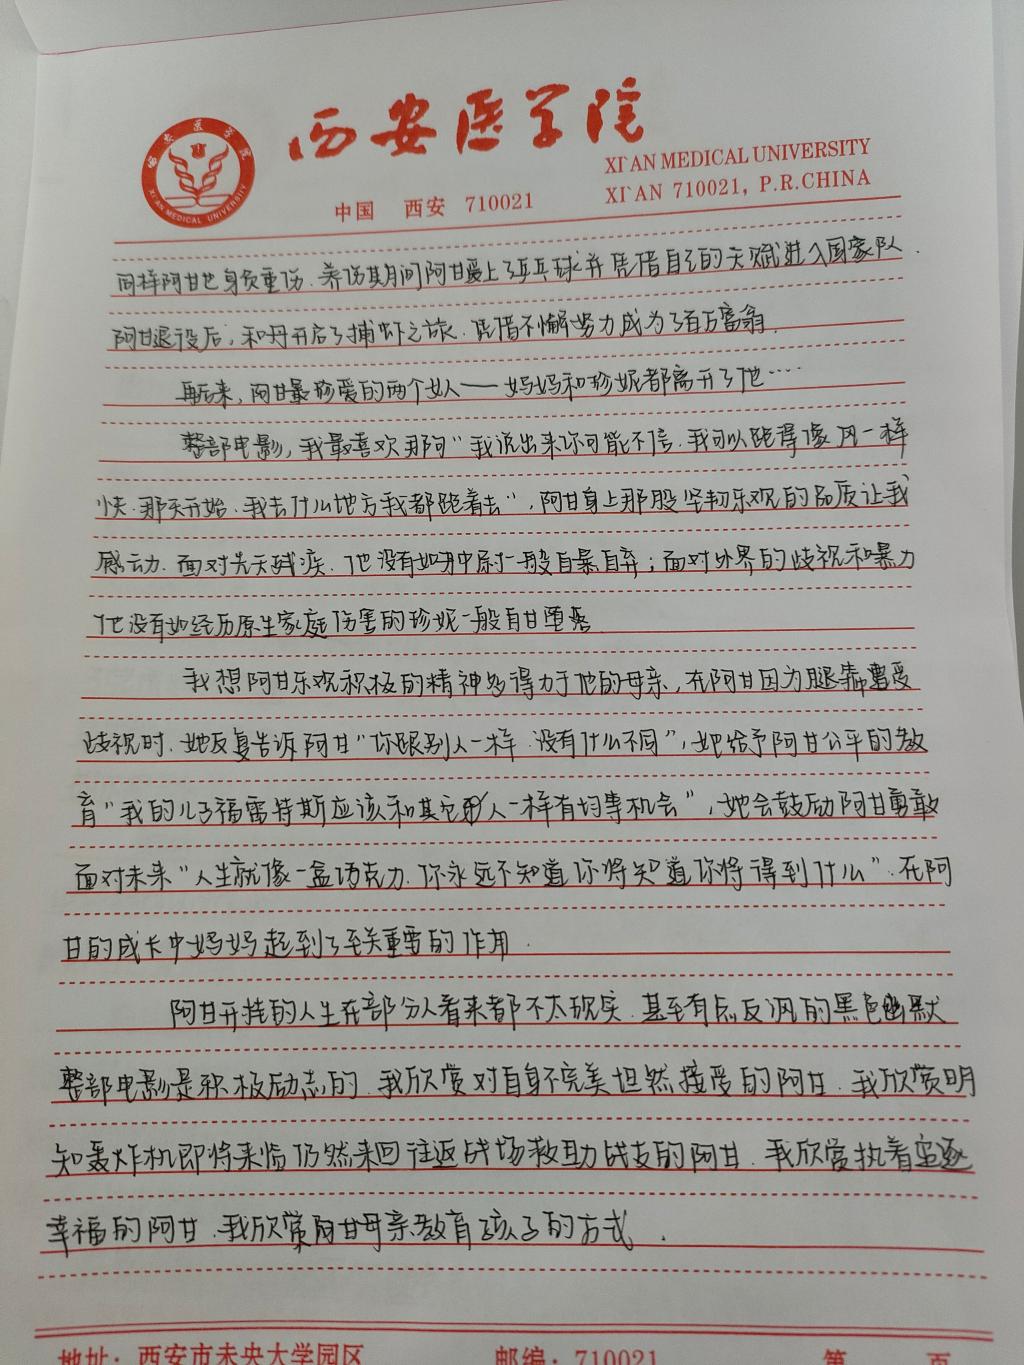 西安医学院
XI'AN MEDICAL UNIVERSITY
中国 西安 710021
XI'AN 710021, P.R.CHINA
西安医学院
XI'AN MEDICAL UNIVERSITY
同样阿甘也身负重伤.养伤期间阿甘爱上了乒乓球并凭借自己的天赋进入国家队.
阿甘退役后,和丹开启了捕虾之旅.凭借不懈努力成为了百万富翁.
再后来,阿甘最珍爱的两个女人——妈妈和珍妮都离开了他····
整部电影,我最喜欢那阿"我说出来你可能不信.我可以跑得像风一样
快.那天开始.我去什么地方我都跑着去",阿甘身上那股坚韧乐观的品质让我
感动.面对先天残疾.他没有如丹中尉一般自暴自弃;面对外界的歧视和暴力
他没有如经历原生家庭伤害的珍妮一般自甘堕落.
我想阿甘乐观积极的精神多得力于他的母亲,在阿甘因为腿部遭受
歧视时.她反复告诉阿甘"你跟别人一样.没有什么不同",她给予阿甘公平的教
育"我的儿子福雷特斯应该和其它人一样有均等机会",她会鼓励阿甘勇敢
面对未来"人生就像一盒巧克力.你永远不知道你将知道你将得到什么".在阿
甘的成长中妈妈起到了至关重要的作用.
阿甘开挂的人生在部分人看来都不太现实.甚至有点反讽的黑色幽默
整部电影是积极励志的.我欣赏对自身不完美坦然接受的阿甘.我欣赏明
知轰炸机即将来临仍然来回往返战场救助战友的阿甘.我欣赏执着追逐
幸福的阿甘.我欣赏阿甘母亲教育孩子的方式.
地址:西安市未央大学园区 邮编:710021 第 页